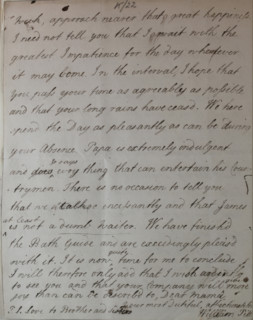 much, approach nearer that great happiness
I need not tell you that I await with the
greatest Impatience for the day whenever
it may come. In the interval, I hope that
you pass your time as agreeably as possible
and that your long rains have ceased. We have
spent the Day as pleasantly as can be during
your Absence. Papa is extremely indulgent
and does every thing that can entertain his
trymen. There is no occasion to tell you
that we incessantly and that James
at least
is not a decent waiter. We have finished
the Bath Guide and are exceedingly pleased
with it. It is now time for me to conclude
I will therefore only add that I wish
to see you and that your Company will
joy than can be described to, Dear Mama,
your most Dutiful affectionate
P.S. love to Brother and William Pitt